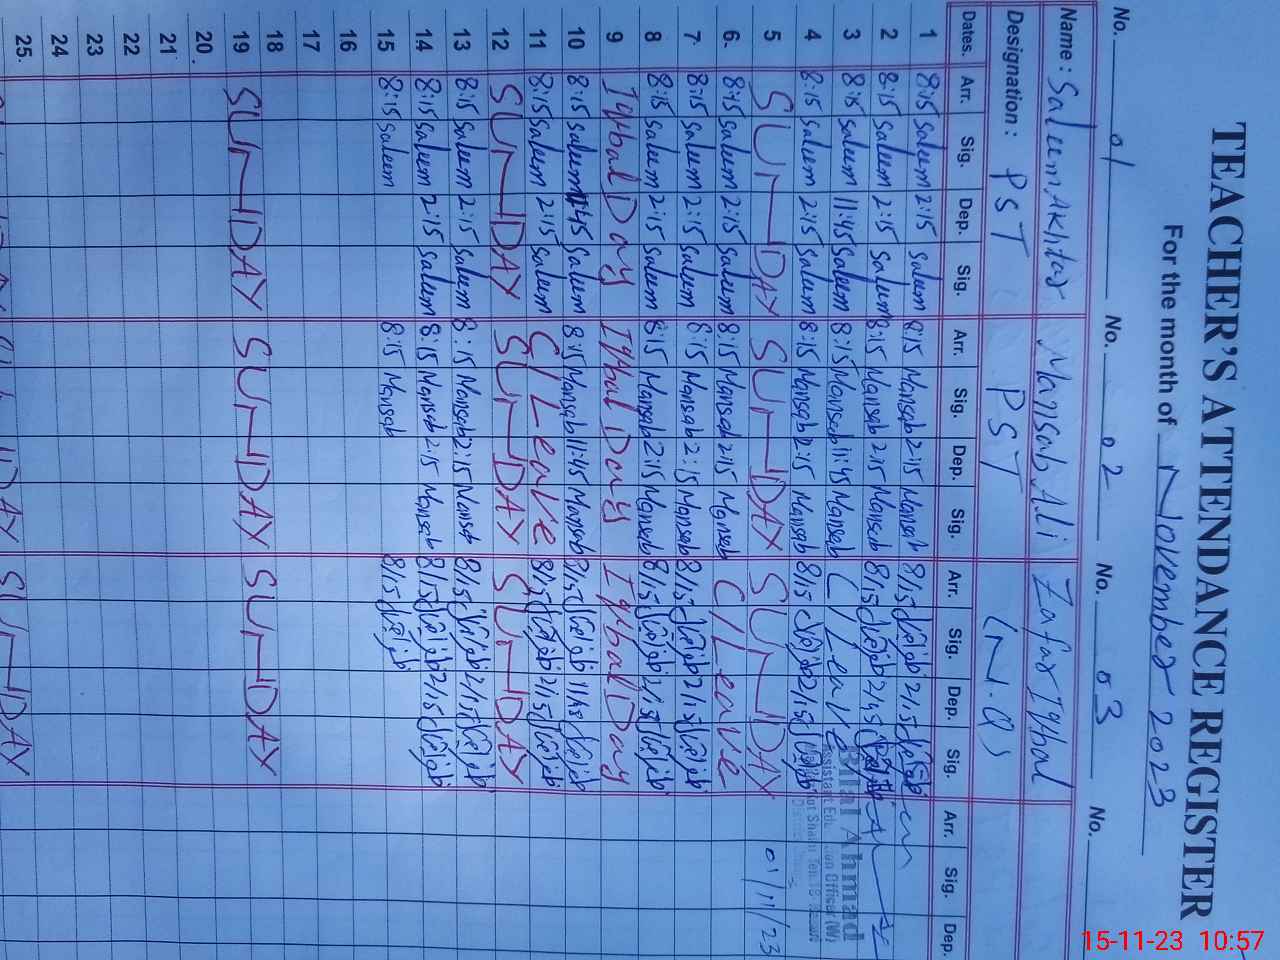 TEACHER'S ATTENDANCE REGISTER
For the month of November 2023
No. 01 No. 02 No. 03 No.
Name: Saleem Akhtar Mansab Ali Zafar Iqbal
Designation: PST PST (N.Q)
Dates. Arr. Sig. Dep. Sig. Arr. Sig. Dep. Sig. Arr. Sig. Dep. Sig. Arr. Sig. Dep.
1 8:15 Saleem 2:15 Saleem 8:15 Mansab 2:15 Mansab 8/15 2/15
2 8:15 Saleem 2:15 Saleem 8:15 Mansab 2:15 Mansab 8/15 2/15
3 8:15 Saleem 11:45 Saleem 8:15 Mansab 11:45 Mansab C/Leave
4 8:15 Saleem 2:15 Saleem 8:15 Mansab 2:15 Mansab 8/15 2/15
5 SUNDAY SUNDAY SUNDAY 01/11/23
6. 8:15 Saleem 2:15 Saleem 8:15 Mansab 2:15 Mansab C/Leave
7 8:15 Saleem 2:15 Saleem 8:15 Mansab 2:15 Mansab 8/15 2/15
8 8:15 Saleem 2:15 Saleem 8:15 Mansab 2:15 Mansab 8/15 2/15
9 Iqbal Day Iqbal Day Iqbal Day
10 8:15 Saleem 11:45 Saleem 8:15 Mansab 11:45 Mansab 8/15 11/45
11 8:15 Saleem 2:15 Saleem C/Leave 8/15 2/15
12 SUNDAY SUNDAY SUNDAY
13 8:15 Saleem 2:15 Saleem 8:15 Mansab 2:15 Mansab 8/15 2/15
14 8:15 Saleem 2:15 Saleem 8:15 Mansab 2:15 Mansab 8/15 2/15
15 8:15 Saleem 8:15 Mansab 8/15
16
17
18
19 SUNDAY SUNDAY SUNDAY
20.
21
22
23
24
25.
Bilal Ahmad
Assistant Edu Officer (W)
15-11-23 10:57